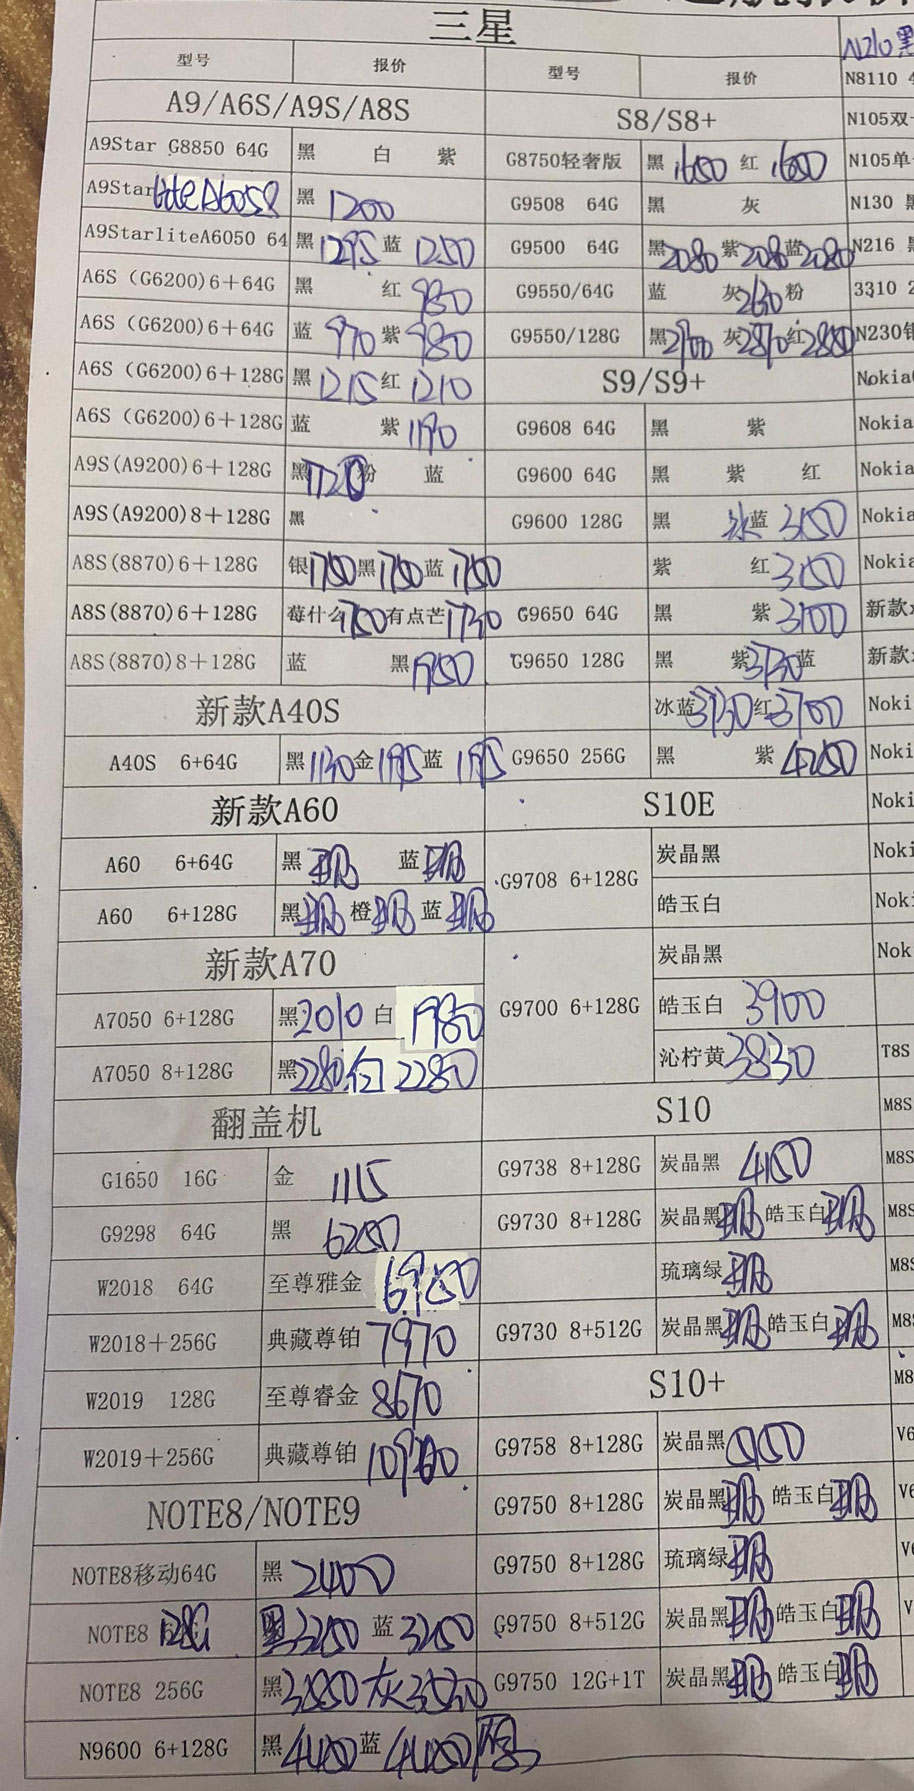 三星
型号 报价 型号 报价
A9/A6S/A9S/A8S
A9Star G8850 64G 黑 白 紫
A9Star lite A6058 黑 1200
A9StarliteA6050 64 黑 1295 蓝 1250
A6S (G6200) 6+64G 黑 红 980
A6S (G6200) 6+64G 蓝 970 紫 980
A6S (G6200) 6+128G 黑 1215 红 1210
A6S (G6200) 6+128G 蓝 紫 1190
A9S(A9200) 6+128G 黑 1720 粉 蓝
A9S(A9200) 8+128G 黑
A8S(8870) 6+128G 银 1750 黑 1750 蓝 1750
A8S(8870) 6+128G 莓什么 1750 有点芒 1730
A8S(8870) 8+128G 蓝 黑 1950
新款A40S
A40S 6+64G 黑 1130 金 1195 蓝 1195
新款A60
A60 6+64G 黑 现 蓝 现
A60 6+128G 黑 现 橙 现 蓝 现
新款A70
A7050 6+128G 黑 2010 白 1980
A7050 8+128G 黑 2280 白 2280
翻盖机
G1650 16G 金 1115
G9298 64G 黑 6200
W2018 64G 至尊雅金 6950
W2018+256G 典藏尊铂 7970
W2019 128G 至尊睿金 8670
W2019+256G 典藏尊铂
NOTE8/NOTE9
NOTE8移动64G 黑 2400
NOTE8 128G 黑 3250 蓝 3250
NOTE8 256G 黑 灰
N9600 6+128G 黑 4450 蓝 4450
S8/S8+
G8750轻奢版 黑 1650 红 1650
G9508 64G 黑 灰
G9500 64G 黑 2080 紫 2080 蓝 2080
G9550/64G 蓝 灰 2630 粉
G9550/128G 黑 灰 2870 红 2880
S9/S9+
G9608 64G 黑 紫
G9600 64G 黑 紫 红
G9600 128G 黑 冰蓝 3150
紫 红 3150
G9650 64G 黑 紫 3100
G9650 128G 黑 紫 3730 蓝
冰蓝 3730 红 3700
G9650 256G 黑 紫 4250
S10E
G9708 6+128G 炭晶黑
皓玉白
G9700 6+128G 炭晶黑
皓玉白 3900
沁柠黄 3830
S10
G9738 8+128G 炭晶黑 4150
G9730 8+128G 炭晶黑 现 皓玉白 现
琉璃绿 现
G9730 8+512G 炭晶黑 现 皓玉白 现
S10+
G9758 8+128G 炭晶黑
G9750 8+128G 炭晶黑 现 皓玉白 现
G9750 8+128G 琉璃绿 现
G9750 8+512G 炭晶黑 现 皓玉白 现
G9750 12G+1T 炭晶黑 现 皓玉白 现
N210 黑
N8110 4
N105双
N105单
N130 黑
N216 黑
3310 2
N230银
Nokia
Nokia
Nokia
Nokia
Nokia
新款
新款
Noki
Noki
Noki
Noki
Nok
Nok
T8S
M8S
M8S
M8S
M8S
M8S
M8
V6
V6
V6
V